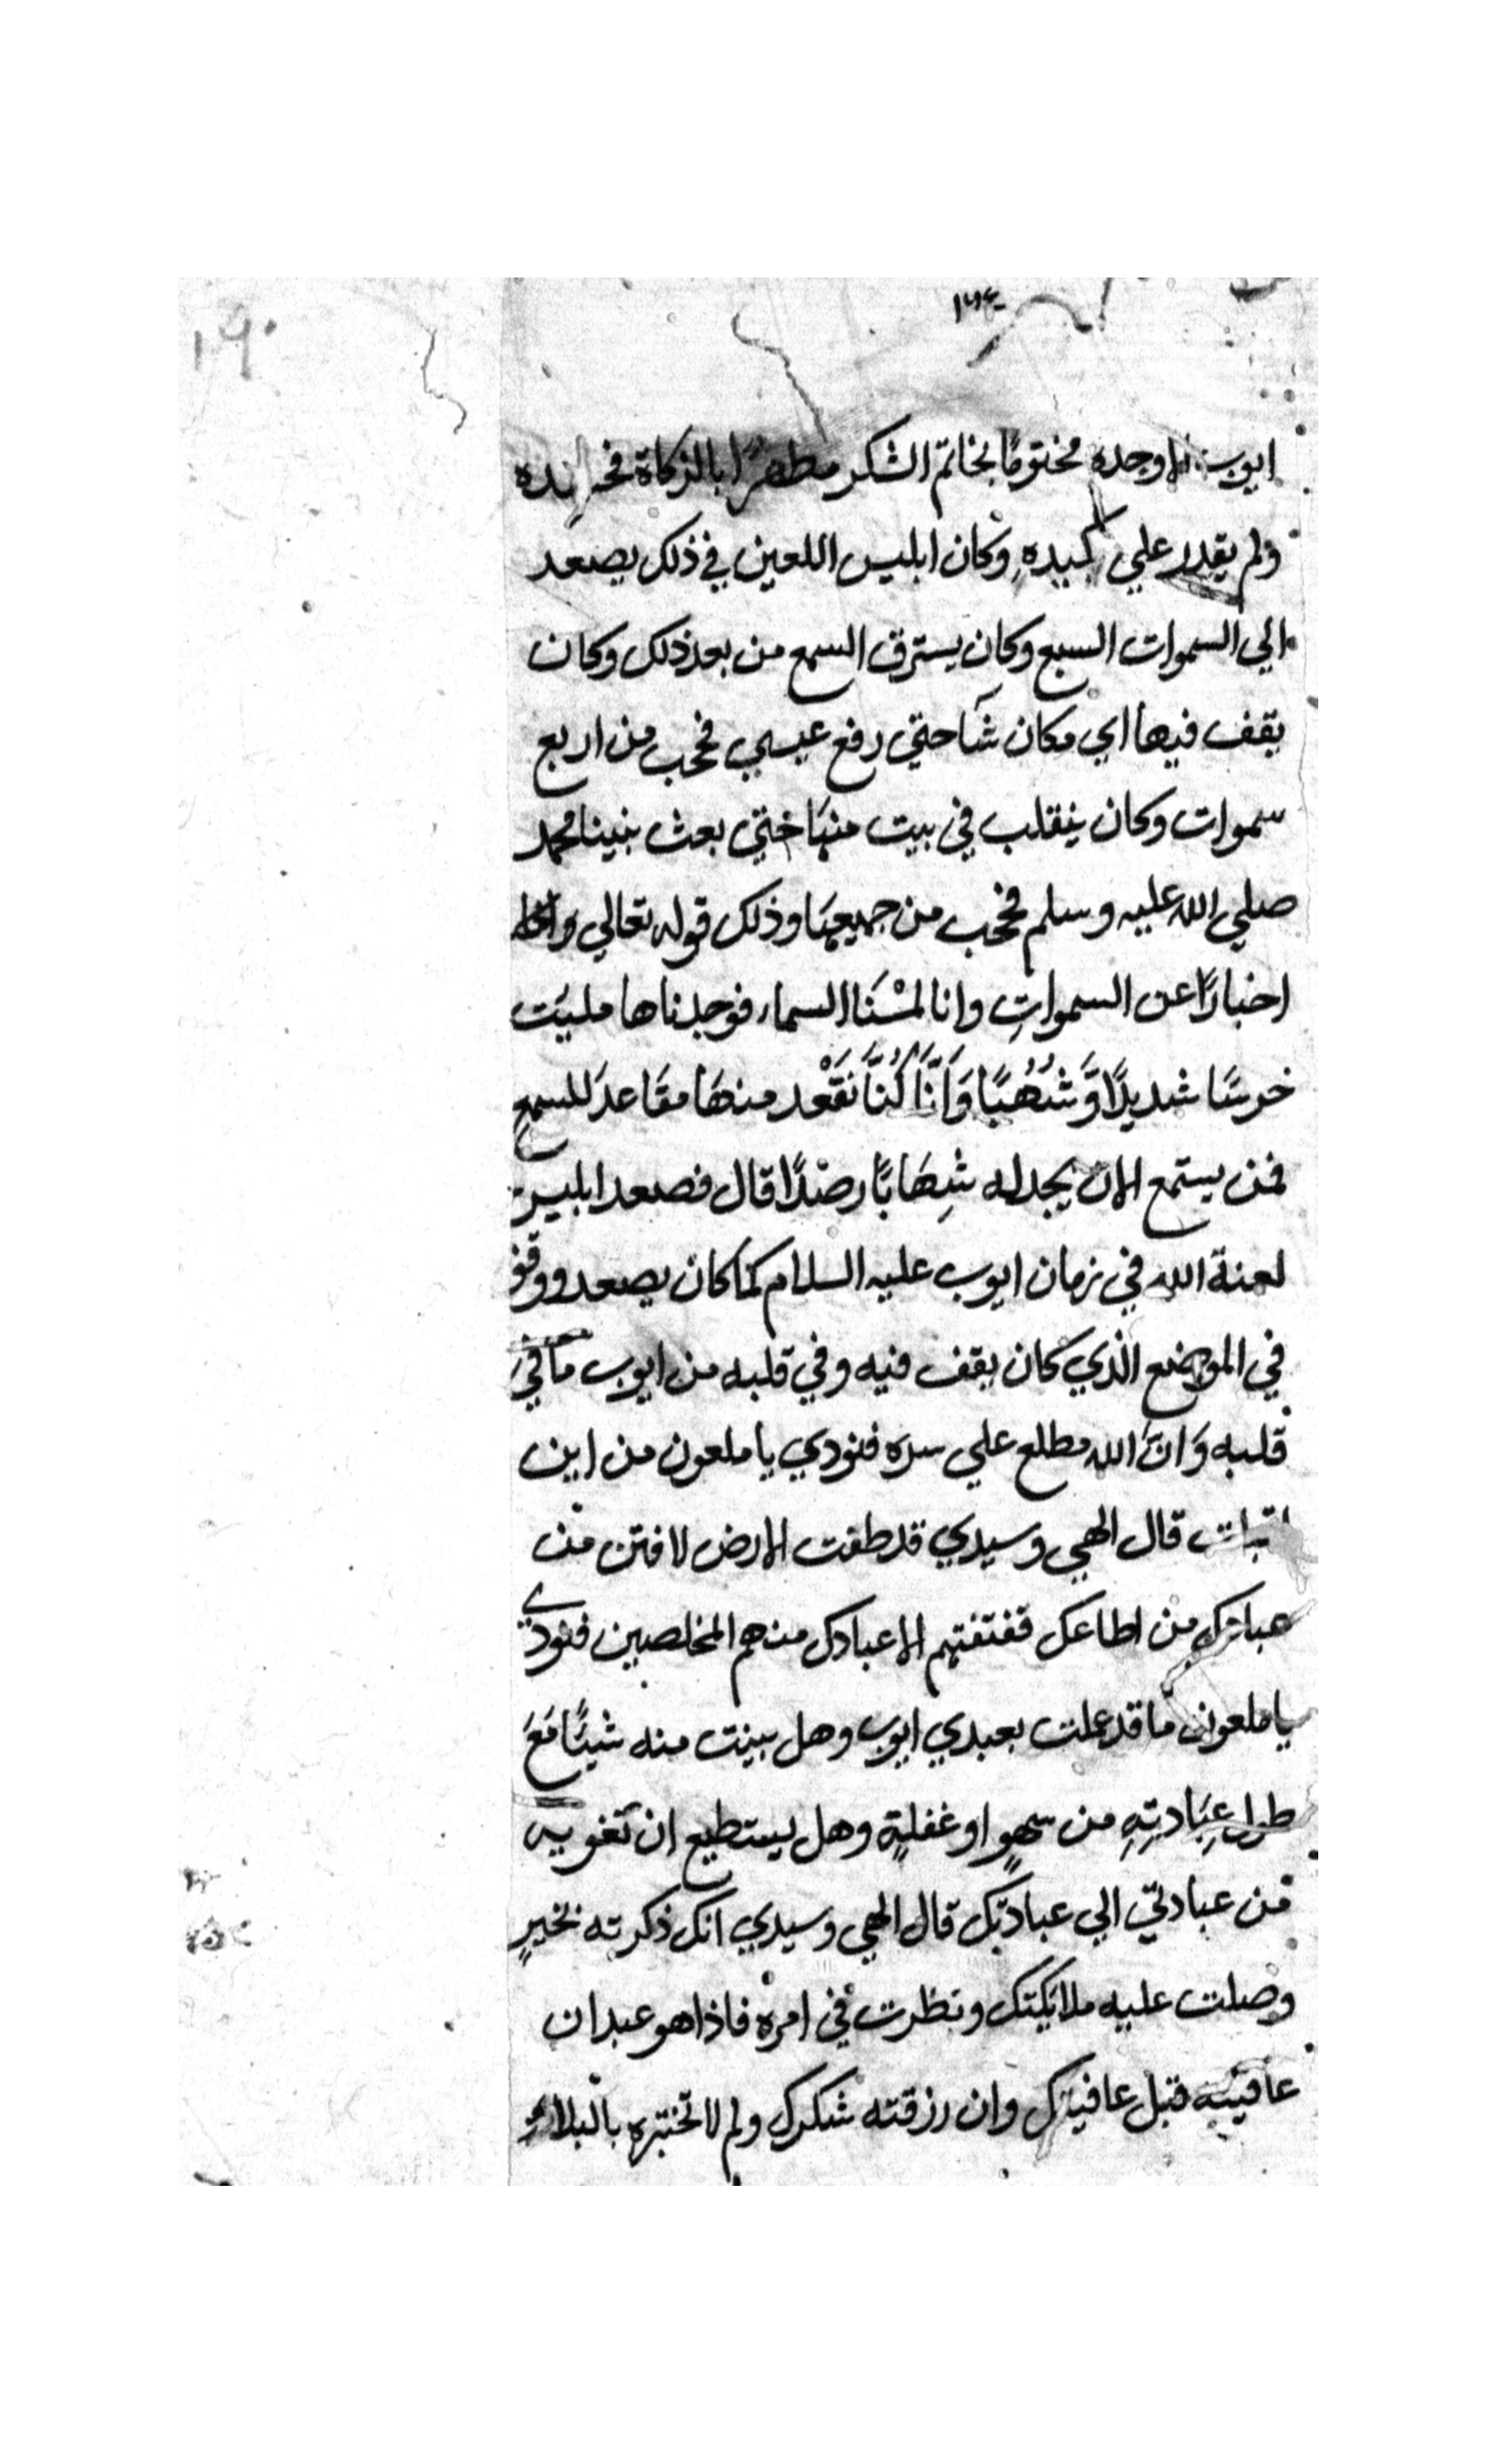 ١٩٠
ايوب الا وجده مختومًا بخاتم الشكر مطهرًا بالزكاة
ولم يقدر علي كيده وكان ابليس اللعين في ذلك يصعد
الي السموات السبع وكان يسترق السمع من بعد ذلك وكان
يقف فيها اي مكان شَا حتي رفع عيسي فحجب من اربع
سموات وكان ينقلب في بيت منها حتي بعث نبينا محمد
صلي الله عليه وسلم فحجب من جميعها وذلك قوله تعالي
اخبارًا عن السمواتِ وانا لمسْنَا السماء فوجدناها مليَت
حرسًا شديدًا وَّشُهُبًا وَاَنَّا كُنَّا نَقْعد منهَا مقَاعدَ للسمع
فمن يستمع الان يجد له شِهَابًا رصدًا قال فصعد ابليس
لعنة الله في زمان ايوب عليه السلام كما كان يصعد ووقف
في الموضع الذي كان يقف فيه وفي قلبه من ايوب ما في
قلبه وَانَّ الله مطلع علي سره فنودي يا ملعون من اين
قال الهي وسيدي قد طفت الارض لافتن من
من اطاعك ففتنتهم الا عبادك منهم المخلصين فنودي
يا ملعون ما قد عملت بعبدي ايوب وهل بينت منه شيئًا مَعَ
طول عِبَادتِهِ من سهوٍ او غفلةٍ وهل يستطيع ان تغويه
من عبادتي الي عبادتك قال الهي وسيدي انك ذكرته بخيرٍ
وصلت عليه ملائكتك ونظرت في امره فاذا هو عبد ان
عافيته قبل عافيتك وان رزقته شكرك ولم لا تختبره بالبلاء